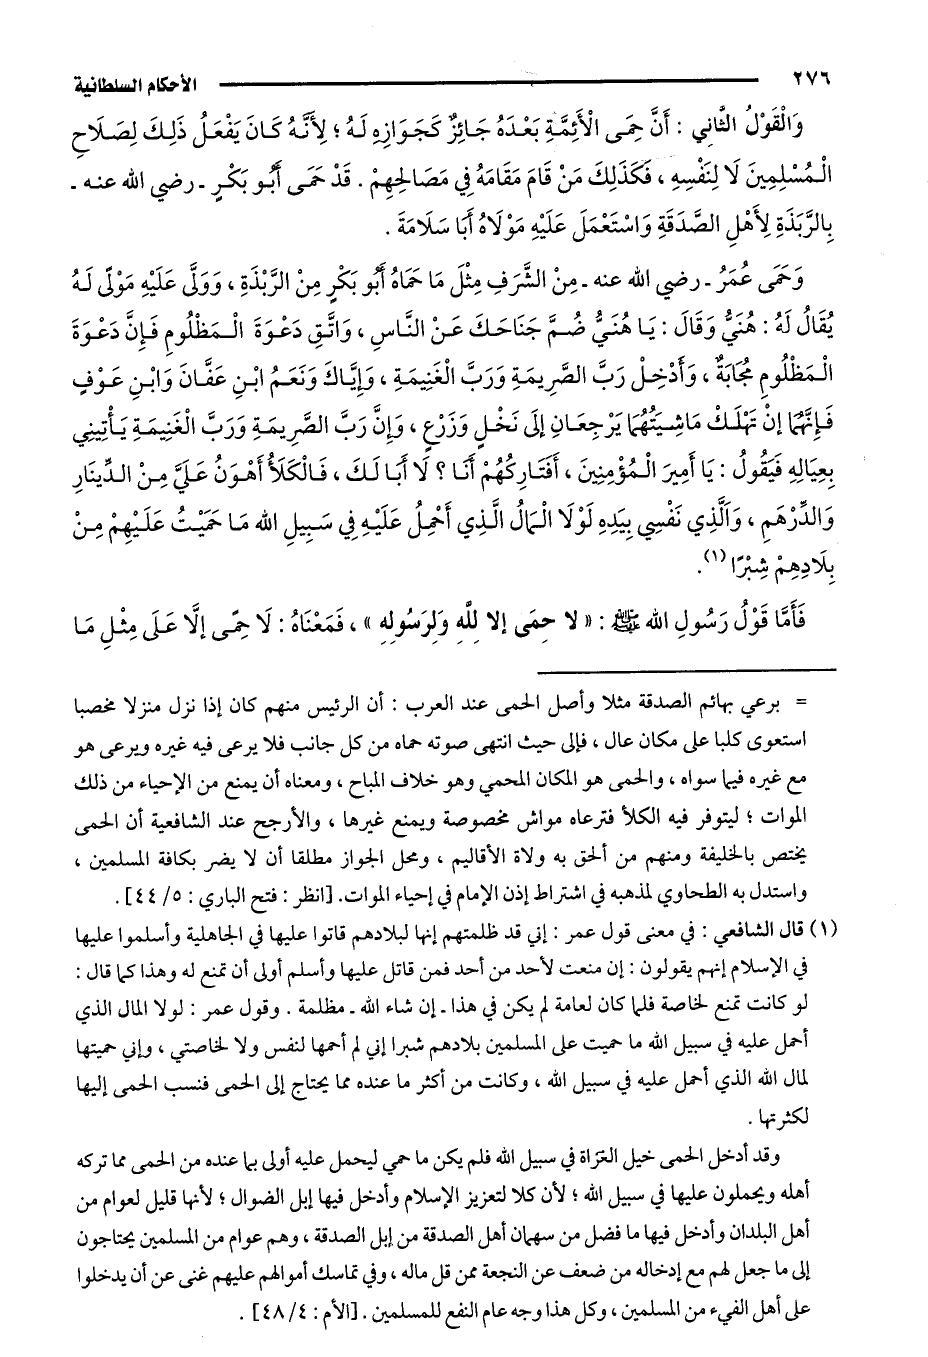 ٢٧٦ الأحكام السلطانية
وَالْقَوْلُ الثَّانِي : أَنَّ حِمَى الْأَئِمَّةِ بَعْدَهُ جَائِزٌ كَجَوَازِهِ لَهُ ؛ لِأَنَّهُ كَانَ يَفْعَلُ ذَلِكَ لِصَلَاحِ
الْمُسْلِمِينَ لَا لِنَفْسِهِ ، فَكَذَلِكَ مَنْ قَامَ مَقَامَهُ فِي مَصَالِحِهِمْ . قَدْ حَمَى أَبُو بَكْرٍ ـ رضي الله عنه ـ
بِالرَّبَذَةِ لِأَهْلِ الصَّدَقَةِ وَاسْتَعْمَلَ عَلَيْهِ مَوْلَاهُ أَبَا سَلَامَةَ .
وَحَمَى عُمَرُ ـ رضي الله عنه ـ مِنْ الشَّرَفِ مِثْلَ مَا حَمَاهُ أَبُو بَكْرٍ مِنْ الرَّبْذَةِ ، وَوَلَّى عَلَيْهِ مَوْلًى لَهُ
يُقَالُ لَهُ : هُنَيٌّ وَقَالَ : يَا هُنَيُّ ضُمَّ جَنَاحَكَ عَنْ النَّاسِ ، وَاتَّقِ دَعْوَةَ الْمَظْلُومِ فَإِنَّ دَعْوَةَ
الْمَظْلُومِ مُجَابَةٌ ، وَأَدْخِلْ رَبَّ الصَّرِيمَةِ وَرَبَّ الْغَنِيمَةِ ، وَإِيَّاكَ وَنَعَمُ ابْنِ عَفَّانَ وَابْنِ عَوْفٍ
فَإِنَّهُمَا إِنْ تَهْلَكْ مَاشِيَتُهُمَا يَرْجِعَانِ إِلَى نَخْلٍ وَزَرْعٍ ، وَإِنَّ رَبَّ الصَّرِيمَةِ وَرَبَّ الْغَنِيمَةِ يَأْتِينِي
بِعِيَالِهِ فَيَقُولُ : يَا أَمِيرَ الْمُؤْمِنِينَ ، أَفَتَارِكُهُمْ أَنَا ؟ لَا أَبَا لَكَ ، فَالْكَلَأُ أَهْوَنُ عَلَيَّ مِنْ الدِّينَارِ
وَالدِّرْهَمِ ، وَالَّذِي نَفْسِي بِيَدِهِ لَوْلَا الْمَالُ الَّذِي أَحْمِلُ عَلَيْهِ فِي سَبِيلِ الله مَا حَمَيْتُ عَلَيْهِمْ مِنْ
بِلَادِهِمْ شِبْرًا (١).
فَأَمَّا قَوْلُ رَسُولِ الله ﷺ : « لا حِمَى إلا للَّهِ وَلِرَسُولِهِ » ، فَمَعْنَاهُ : لَا حِمًى إلَّا عَلَى مِثْلِ مَا
= يرعي بهائم الصدقة مثلا وأصل الحمى عند العرب : أن الرئيس منهم كان إذا نزل منزلا مخصبا
استعوى كلبا على مكان عال ، فإلى حيث انتهى صوته حماه من كل جانب فلا يرعى فيه غيره ويرعى هو
مع غيره فيما سواه ، والحمى هو المكان المحمي وهو خلاف المباح ، ومعناه أن يمنع من الإحياء من ذلك
الموات ؛ ليتوفر فيه الكلأ فترعاه مواش مخصوصة ويمنع غيرها ، والأرجح عند الشافعية أن الحمى
يختص بالخليفة ومنهم من ألحق به ولاة الأقاليم ، ومحل الجواز مطلقا أن لا يضر بكافة المسلمين ،
واستدل به الطحاوي لمذهبه في اشتراط إذن الإمام في إحياء الموات. [انظر : فتح الباري : ٥/ ٤٤] .
(١) قال الشافعي : في معنى قول عمر : إني قد ظلمتهم إنها لبلادهم قاتوا عليها في الجاهلية وأسلموا عليها
في الإسلام إنهم يقولون : إن منعت لأحد من أحد فمن قاتل عليها وأسلم أولى أن تمنع له وهذا كما قال :
لو كانت تمنع لخاصة فلما كان لعامة لم يكن في هذا ـ إن شاء الله ـ مظلمة . وقول عمر : لولا المال الذي
أحمل عليه في سبيل الله ما حميت على المسلمين بلادهم شبرا إني لم أحمها لنفس ولا لخاصتي ، وإني حميتها
لمال الله الذي أحمل عليه في سبيل الله ، وكانت من أكثر ما عنده مما يحتاج إلى الحمى فنسب الحمى إليها
لكثرتها .
وقد أدخل الحمى خيل الغزاة في سبيل الله فلم يكن ما حمي ليحمل عليه أولى بما عنده من الحمى مما تركه
أهله ويحملون عليها في سبيل الله ؛ لأن كلا لتعزيز الإسلام وأدخل فيها إبل الضوال ؛ لأنها قليل لعوام من
أهل البلدان وأدخل فيها ما فضل من سهمان أهل الصدقة من إبل الصدقة ، وهم عوام من المسلمين يحتاجون
إلى ما جعل لهم مع إدخاله من ضعف عن النجعة ممن قل ماله ، وفي تماسك أموالهم عليهم غنى عن أن يدخلوا
على أهل الفيء من المسلمين ، وكل هذا وجه عام النفع للمسلمين . [الأم : ٤/ ٤٨] .